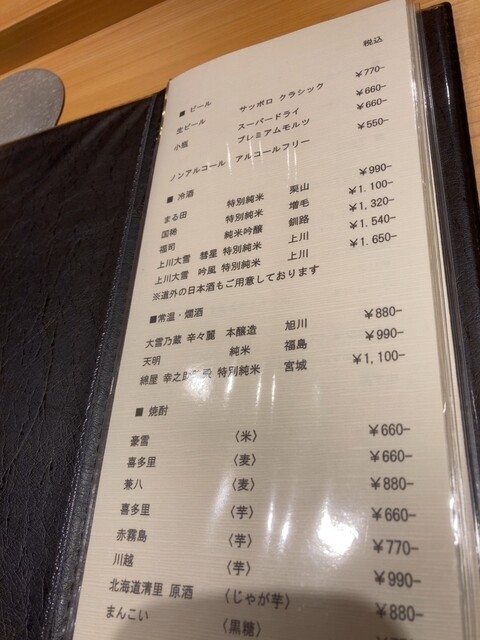 税込
■ ビール
生ビール サッポロ クラシック ￥770-
小瓶 スーパードライ ￥660-
プレミアムモルツ ￥660-
ノンアルコール・アルコールフリー ￥550-
■ 冷酒
まる田 特別純米 栗山 ￥990-
国稀 特別純米 増毛 ￥1,100-
福司 純米吟醸 釧路 ￥1,320-
上川大雪 彗星 特別純米 上川 ￥1,540-
上川大雪 吟風 特別純米 上川 ￥1,650-
※道外の日本酒もご用意しております
■常温・燗酒
大雪乃蔵 辛々麗 本醸造 旭川 ￥880-
天明 純米 福島 ￥990-
綿屋 幸之助 特別純米 宮城 ￥1,100-
■ 焼酎
豪雪 〈米〉 ￥660-
喜多里 〈麦〉 ￥660-
兼八 〈麦〉 ￥880-
喜多里 〈芋〉 ￥660-
赤霧島 〈芋〉 ￥770-
川越 〈芋〉 ￥990-
北海道清里 原酒 〈じゃが芋〉 ￥880-
まんこい 〈黒糖〉